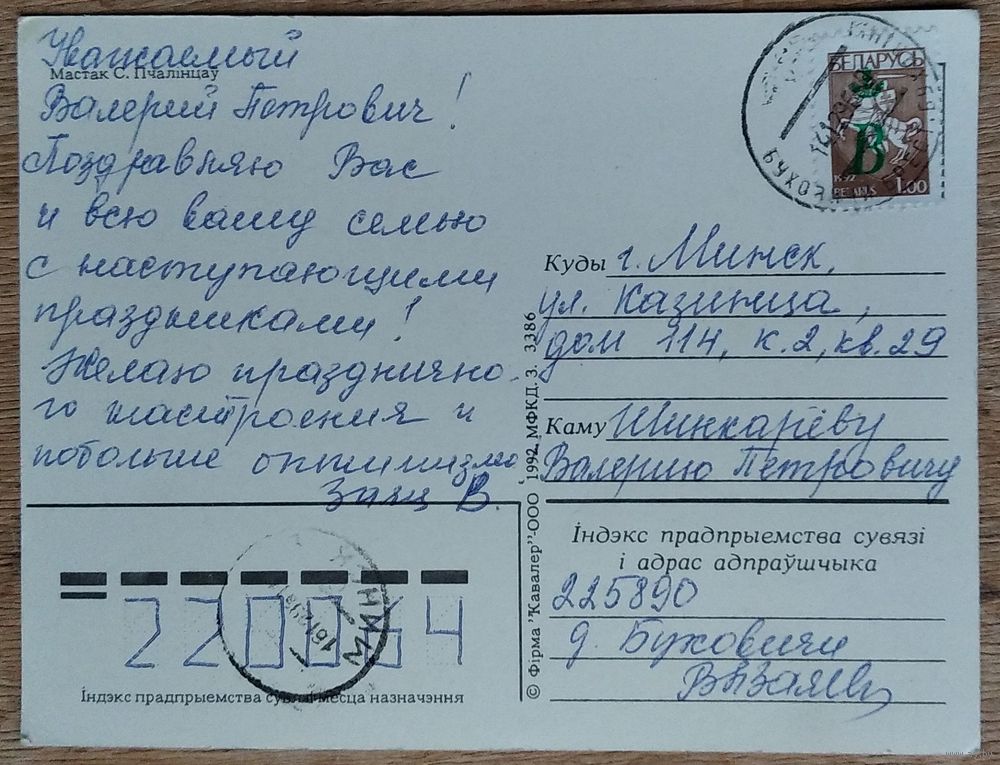 Уважаемый
Мастак С. Пчалінцаў
Валерий Петрович!
Поздравляю Вас
и всю вашу семью
с наступающими
праздниками!
Желаю празднично-
го настроения и
побольше оптимизма
Заяц В.
БЕЛАРУСЬ
В
1992
BELARUS 1.00
Куды г. Минск,
ул. Казинца,
дом 114, к.2, кв.29
Каму Шинкарёву
Валерию Петровичу
Індэкс прадпрыемства сувязі
і адрас адпраўшчыка
225890
д. Буховичи
© Фірма "Кавалер"-ООО 1992, МФКД. З. 3386
МИНСК
220064
Індэкс прадпрыемства сувязі і месца назначэння